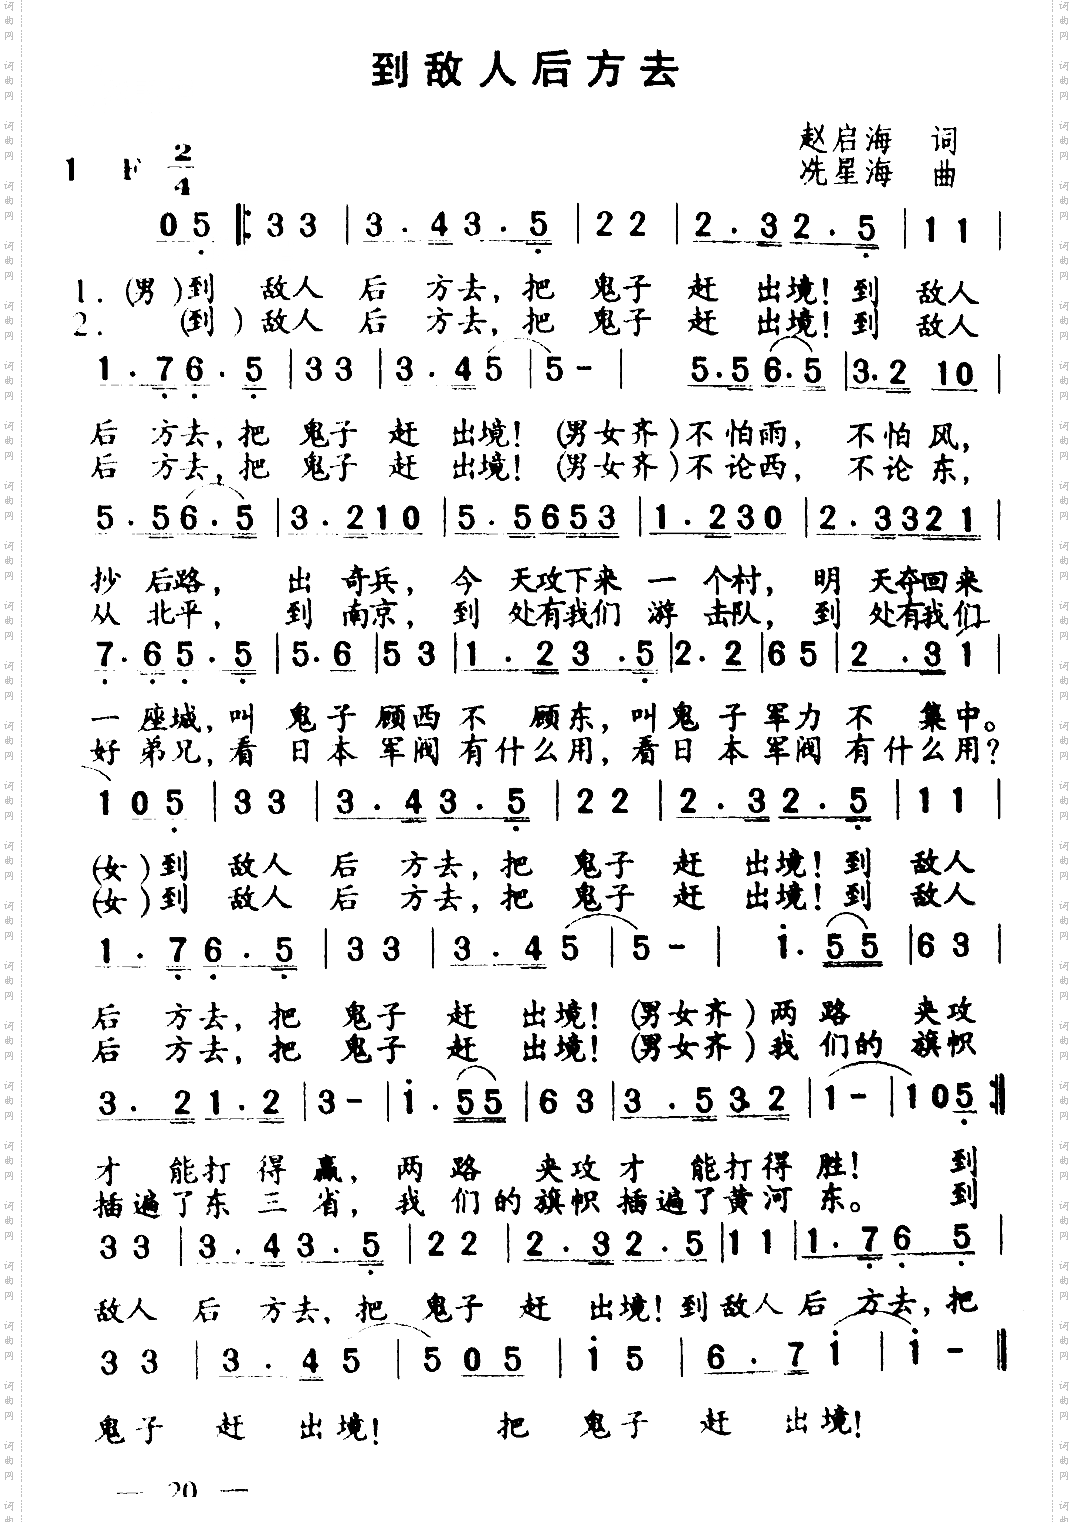 到敌人后方去
赵启海 词
1 F 2/4
冼星海 曲
0 5 ‖: 3 3 | 3 . 4 3 . 5 | 2 2 | 2 . 3 2 . 5 | 1 1 |
1. (男)到 敌人 后 方去，把 鬼子 赶 出境！到 敌人
2. (到)敌人 后 方去，把 鬼子 赶 出境！到 敌人
1 . 7 6 . 5 | 3 3 | 3 . 4 5 | 5 - | 5 . 5 6 . 5 | 3 . 2 1 0 |
后 方去，把 鬼子 赶 出境！(男女齐)不怕雨， 不怕风，
后 方去，把 鬼子 赶 出境！(男女齐)不论西， 不论东，
5 . 5 6 . 5 | 3 . 2 1 0 | 5 . 5 6 5 3 | 1 . 2 3 0 | 2 . 3 3 2 1 |
抄 后路， 出 奇兵， 今 天攻下来 一 个村， 明 天夺回来
从 北平， 到 南京， 到 处有我们 游 击队， 到 处有我们
7 . 6 5 . 5 | 5 . 6 | 5 3 | 1 . 2 3 . 5 | 2 . 2 | 6 5 | 2 . 3 1 |
一 座城，叫 鬼 子 顾西 不 顾东，叫鬼 子 军力 不 集中。
好 弟兄，看 日 本 军阀 有什么用，看日 本 军阀 有什么用？
1 0 5 | 3 3 | 3 . 4 3 . 5 | 2 2 | 2 . 3 2 . 5 | 1 1 |
(女)到 敌人 后 方去，把 鬼子 赶 出境！到 敌人
(女)到 敌人 后 方去，把 鬼子 赶 出境！到 敌人
1 . 7 6 . 5 | 3 3 | 3 . 4 5 | 5 - | i . 5 5 | 6 3 |
后 方去，把 鬼子 赶 出境！(男女齐)两 路 夹攻
后 方去，把 鬼子 赶 出境！(男女齐)我 们的 旗帜
3 . 2 1 . 2 | 3 - | i . 5 5 | 6 3 | 3 . 5 3 2 | 1 - | 1 0 5 :‖
才 能打 得 赢，两 路 夹攻才 能打得 胜！ 到
插遍了东 三 省，我 们的旗帜 插遍了黄河 东。 到
3 3 | 3 . 4 3 . 5 | 2 2 | 2 . 3 2 . 5 | 1 1 | 1 . 7 6 5 |
敌人 后 方去，把 鬼子 赶 出境！到敌人 后 方去，把
3 3 | 3 . 4 5 | 5 0 5 | i 5 | 6 . 7 i | i - ‖
鬼子 赶 出境！ 把 鬼子 赶 出境！
— 20 —
词曲网